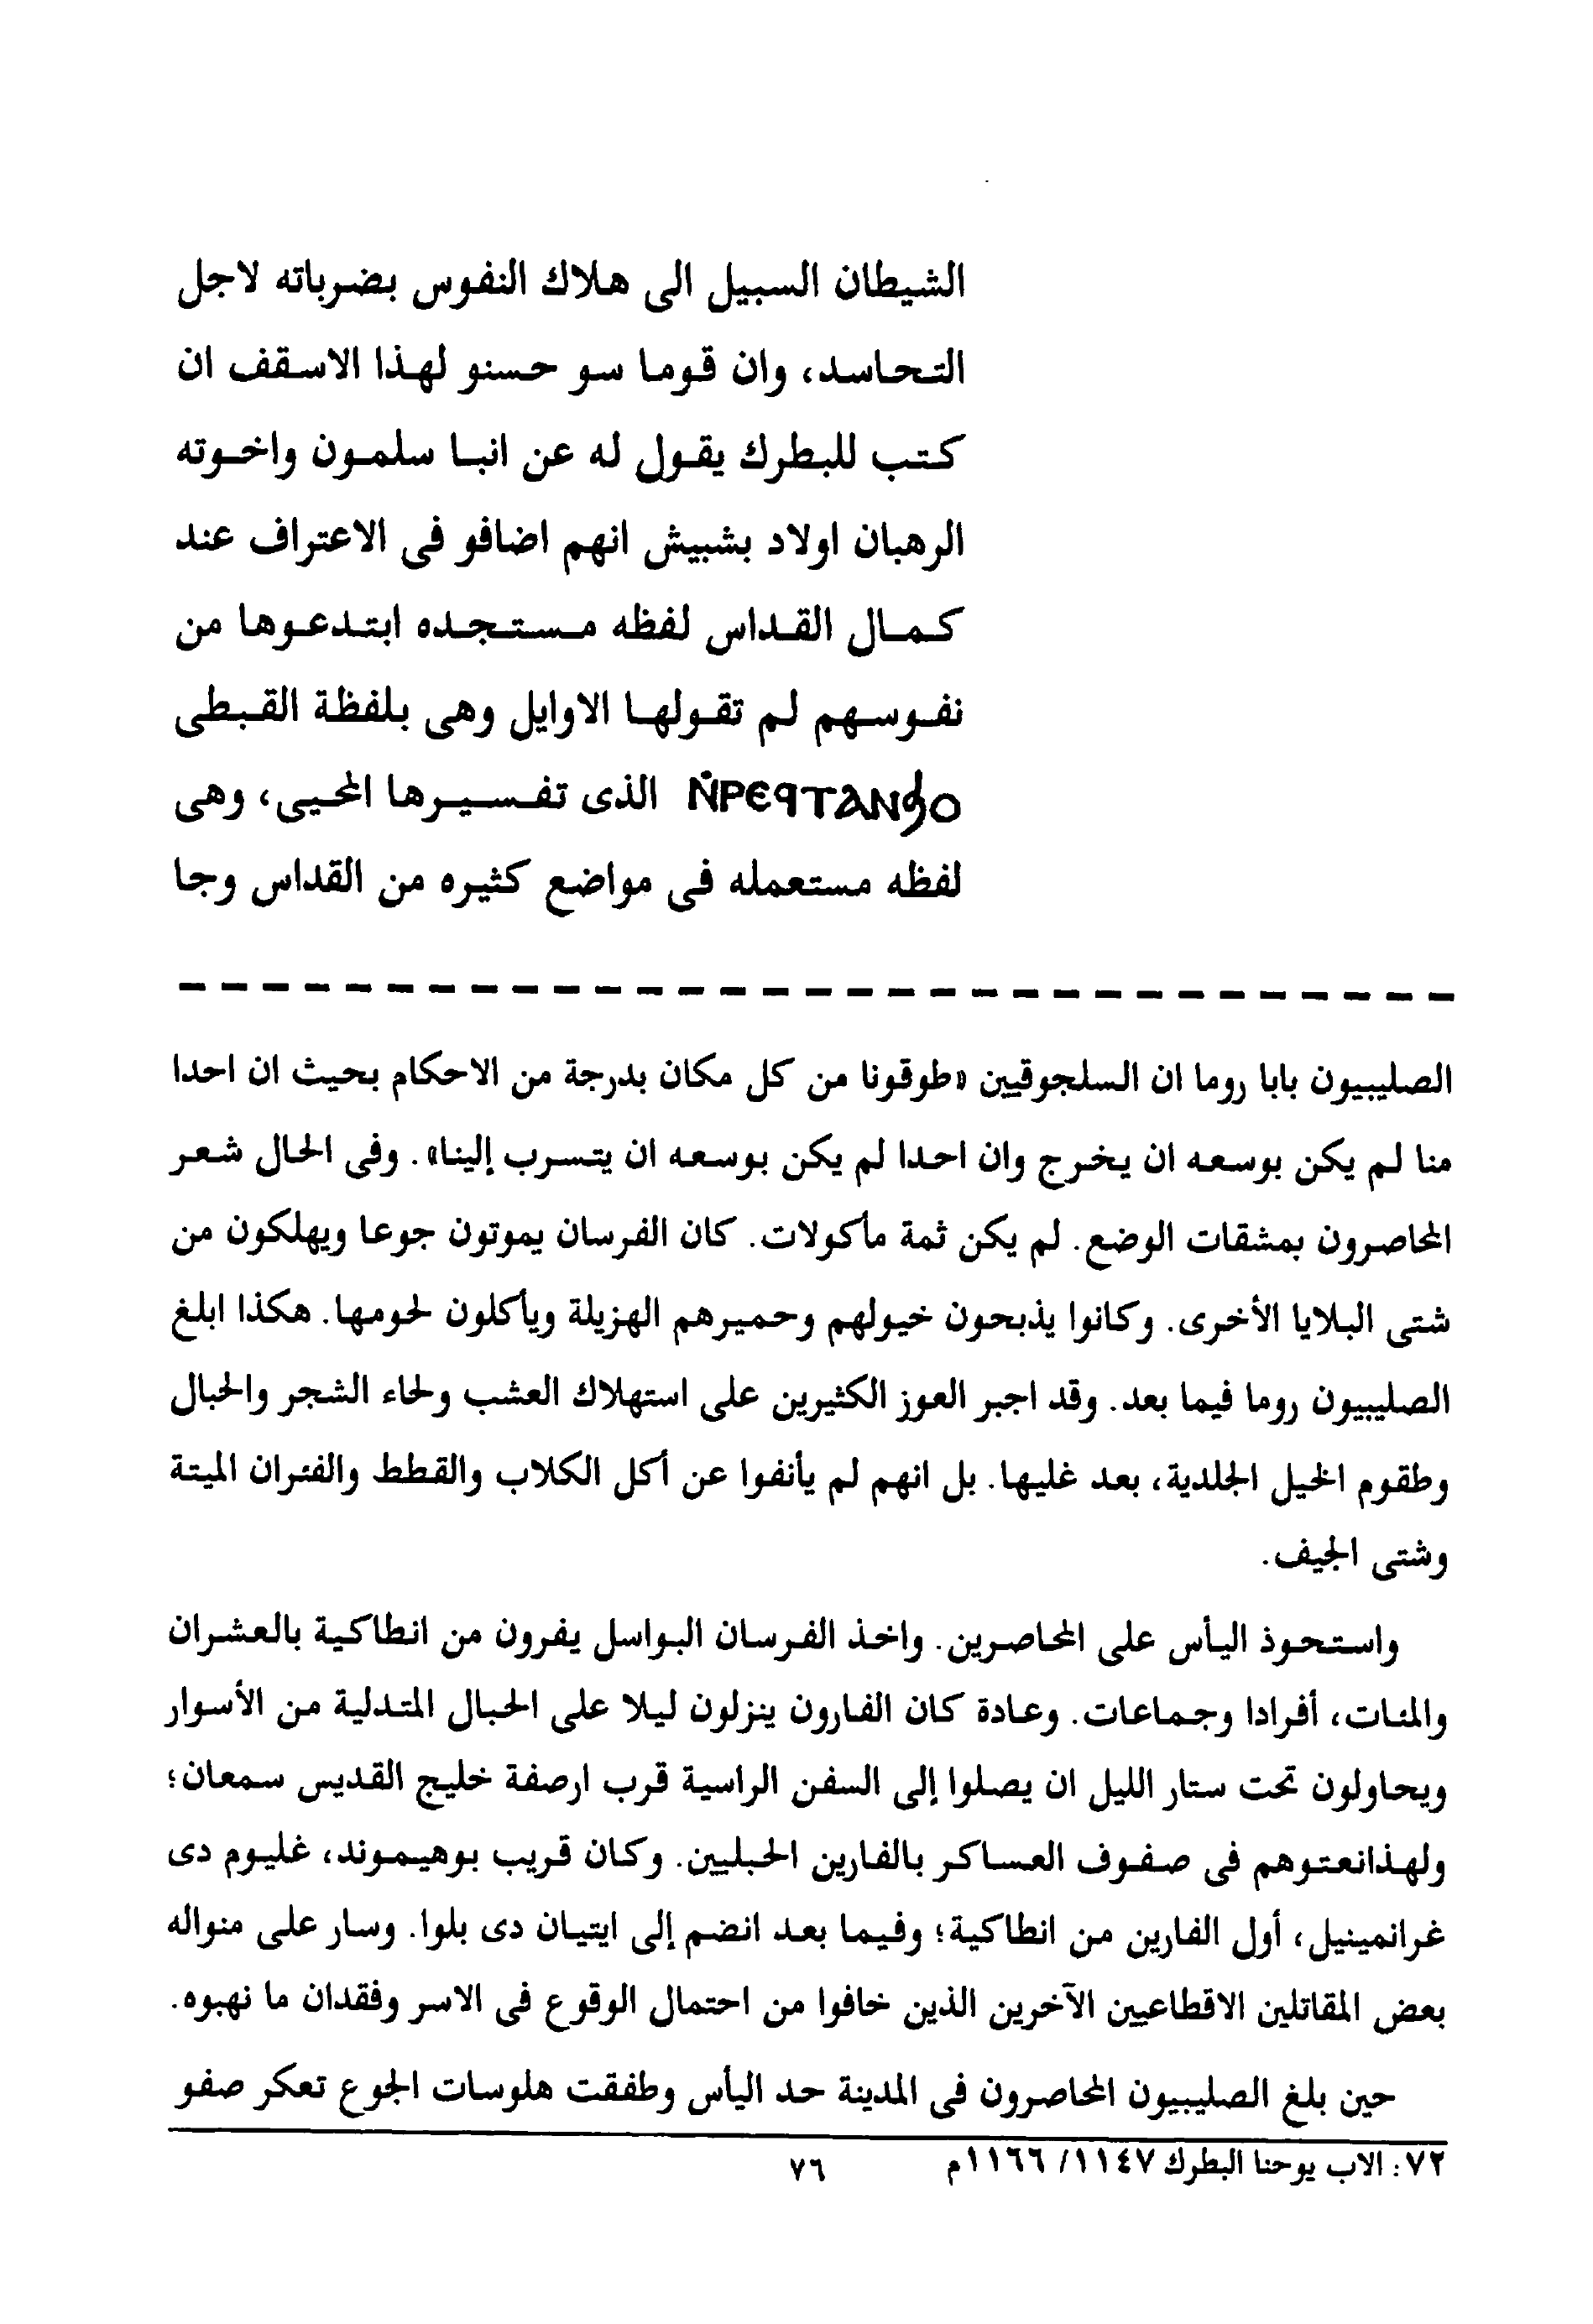 الشيطان السبيل الى هلاك النفوس بضرباته لاجل
التحاسد، وان قوما سو حسنو لهذا الاسقف ان
كتب للبطرك يقول له عن انبا سلمون واخوته
الرهبان اولاد بشبيش انهم اضافو فى الاعتراف عند
كمال القداس لفظه مستجده ابتدعوها من
نفوسهم لم تقولها الاوايل وهى بلفظة القبطى
ⲚⲢⲈϤⲦⲀⲚϦⲞ الذى تفسيرها المحيى، وهى
لفظه مستعمله فى مواضع كثيره من القداس وجا
الصليبيون بابا روما ان السلجوقيين «طوقونا من كل مكان بدرجة من الاحكام بحيث ان احدا
منا لم يكن بوسعه ان يخرج وان احدا لم يكن بوسعه ان يتسرب إلينا». وفى الحال شعر
المحاصرون بمشقات الوضع. لم يكن ثمة مأكولات. كان الفرسان يموتون جوعا ويهلكون من
شتى البلايا الأخرى. وكانوا يذبحون خيولهم وحميرهم الهزيلة ويأكلون لحومها. هكذا ابلغ
الصليبيون روما فيما بعد. وقد اجبر العوز الكثيرين على استهلاك العشب ولحاء الشجر والحبال
وطقوم الخيل الجلدية، بعد غليها. بل انهم لم يأنفوا عن أكل الكلاب والقطط والفئران الميتة
وشتى الجيف.
واستحوذ اليأس على المحاصرين. واخذ الفرسان البواسل يفرون من انطاكية بالعشران
والمئات، أفرادا وجماعات. وعادة كان الفارون ينزلون ليلا على الحبال المتدلية من الأسوار
ويحاولون تحت ستار الليل ان يصلوا إلى السفن الراسية قرب ارصفة خليج القديس سمعان؛
ولهذانعتوهم فى صفوف العساكر بالفارين الحبليين. وكان قريب بوهيموند، غليوم دى
غرانمينيل، أول الفارين من انطاكية؛ وفيما بعد انضم إلى ايتيان دى بلوا. وسار على منواله
بعض المقاتلين الاقطاعيين الآخرين الذين خافوا من احتمال الوقوع فى الاسر وفقدان ما نهبوه.
حين بلغ الصليبيون المحاصرون فى المدينة حد اليأس وطفقت هلوسات الجوع تعكر صفو
٧٢: الاب يوحنا البطرك ١١٤٧/ ١١٦٦م
٧٦